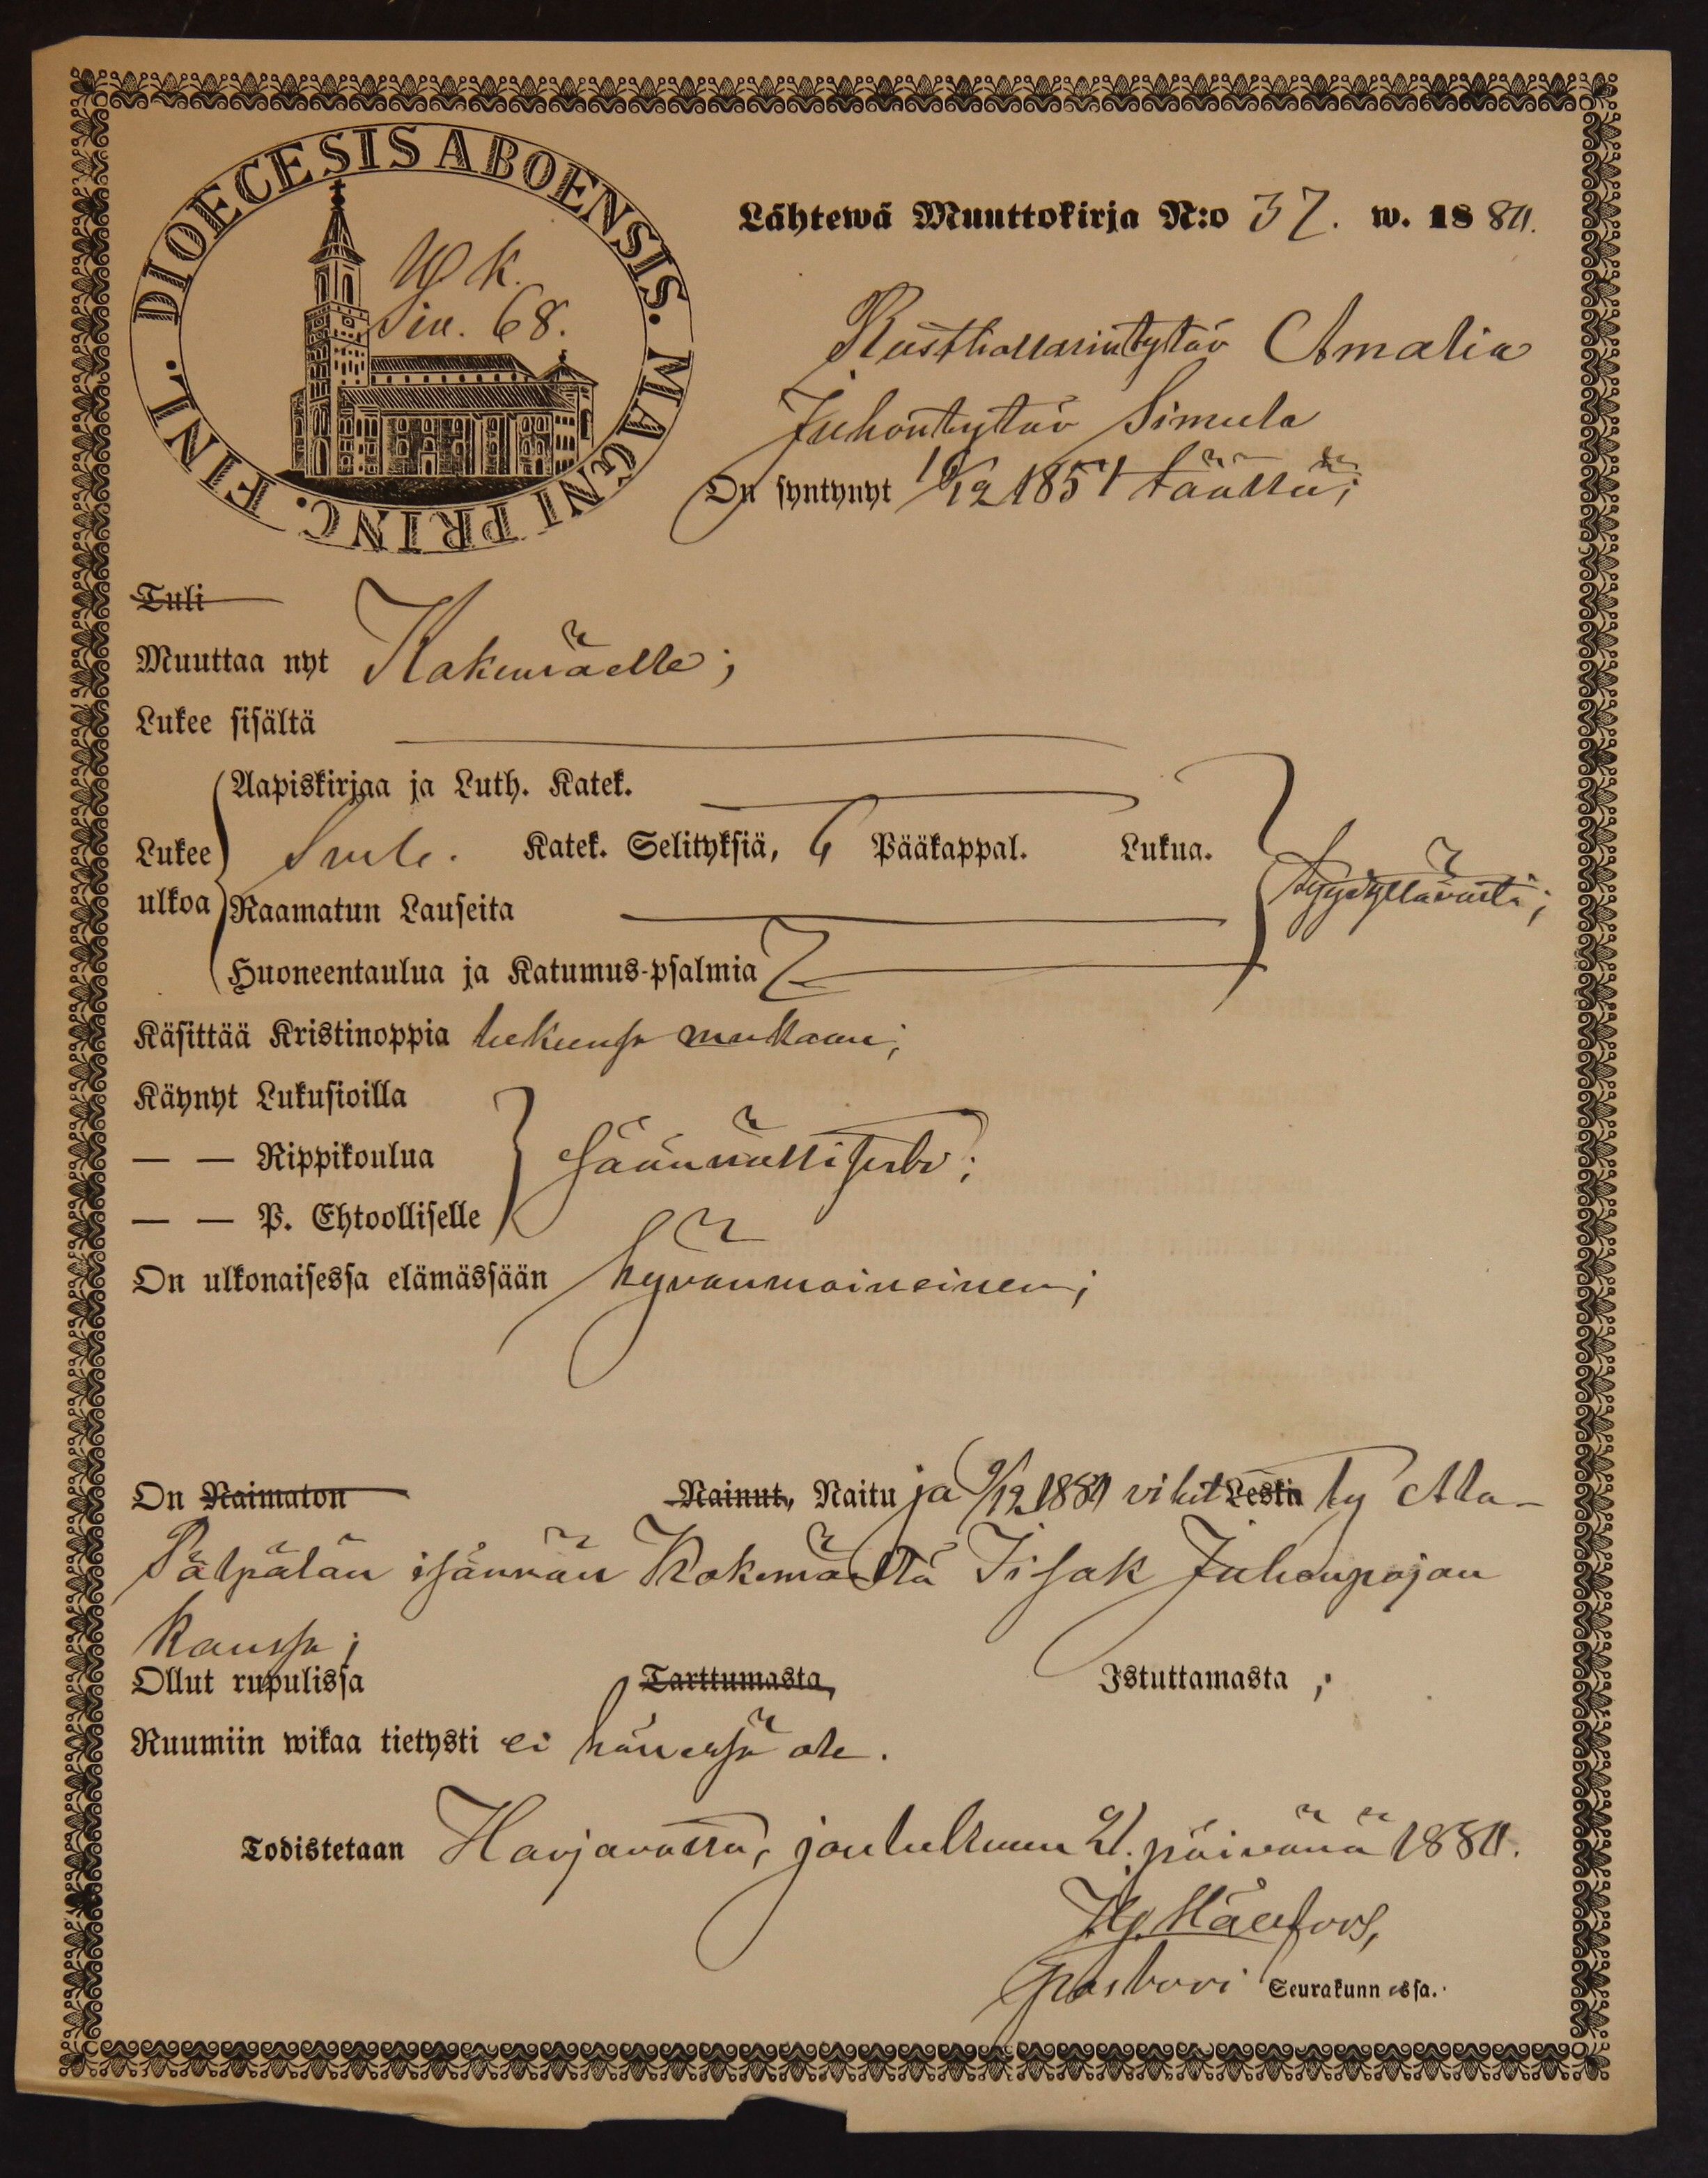 DIOECESIS ABOENSIS. MAGNI PRINC. FINL.
W k.
Siu. 68.
Lähtewä Muuttokirja N:o 37. w. 1880.
Rusthollarintytär Amalia
Juhontytär Simula
On syntynyt 10/12 1851 täällä;
Tuli
Muuttaa nyt Kokemäelle;
Lukee sisältä
Aapiskirjaa ja Luth. Katek.
Lukee ulkoa
Katek. Selityksiä, 6 Pääkappal. Lukua.
tyydyttäwästi;
Raamatun Lauseita
Huoneentaulua ja Katumus-psalmia
Käsittää Kristinoppia lukunsa mukaan;
Käynyt Lukusioilla
— — Rippikoulua säännöllisesti;
— — P. Ehtoolliselle
On ulkonaisessa elämässään hyvänmaineinen;
On Naimaton Nainut, Naitu ja 9/12 1880 vihitty Leski Ala-
Pälpälän isännän Kokemäeltä Iisak Juhonpojan
kanssa;
Ollut rupulissa Tarttumasta, Istuttamasta;
Ruumiin wikaa tietysti ei hänessä ole.
Todistetaan Harjavalta, joulukuun 21. päivänä 1880.
pastori Seurakunnassa.